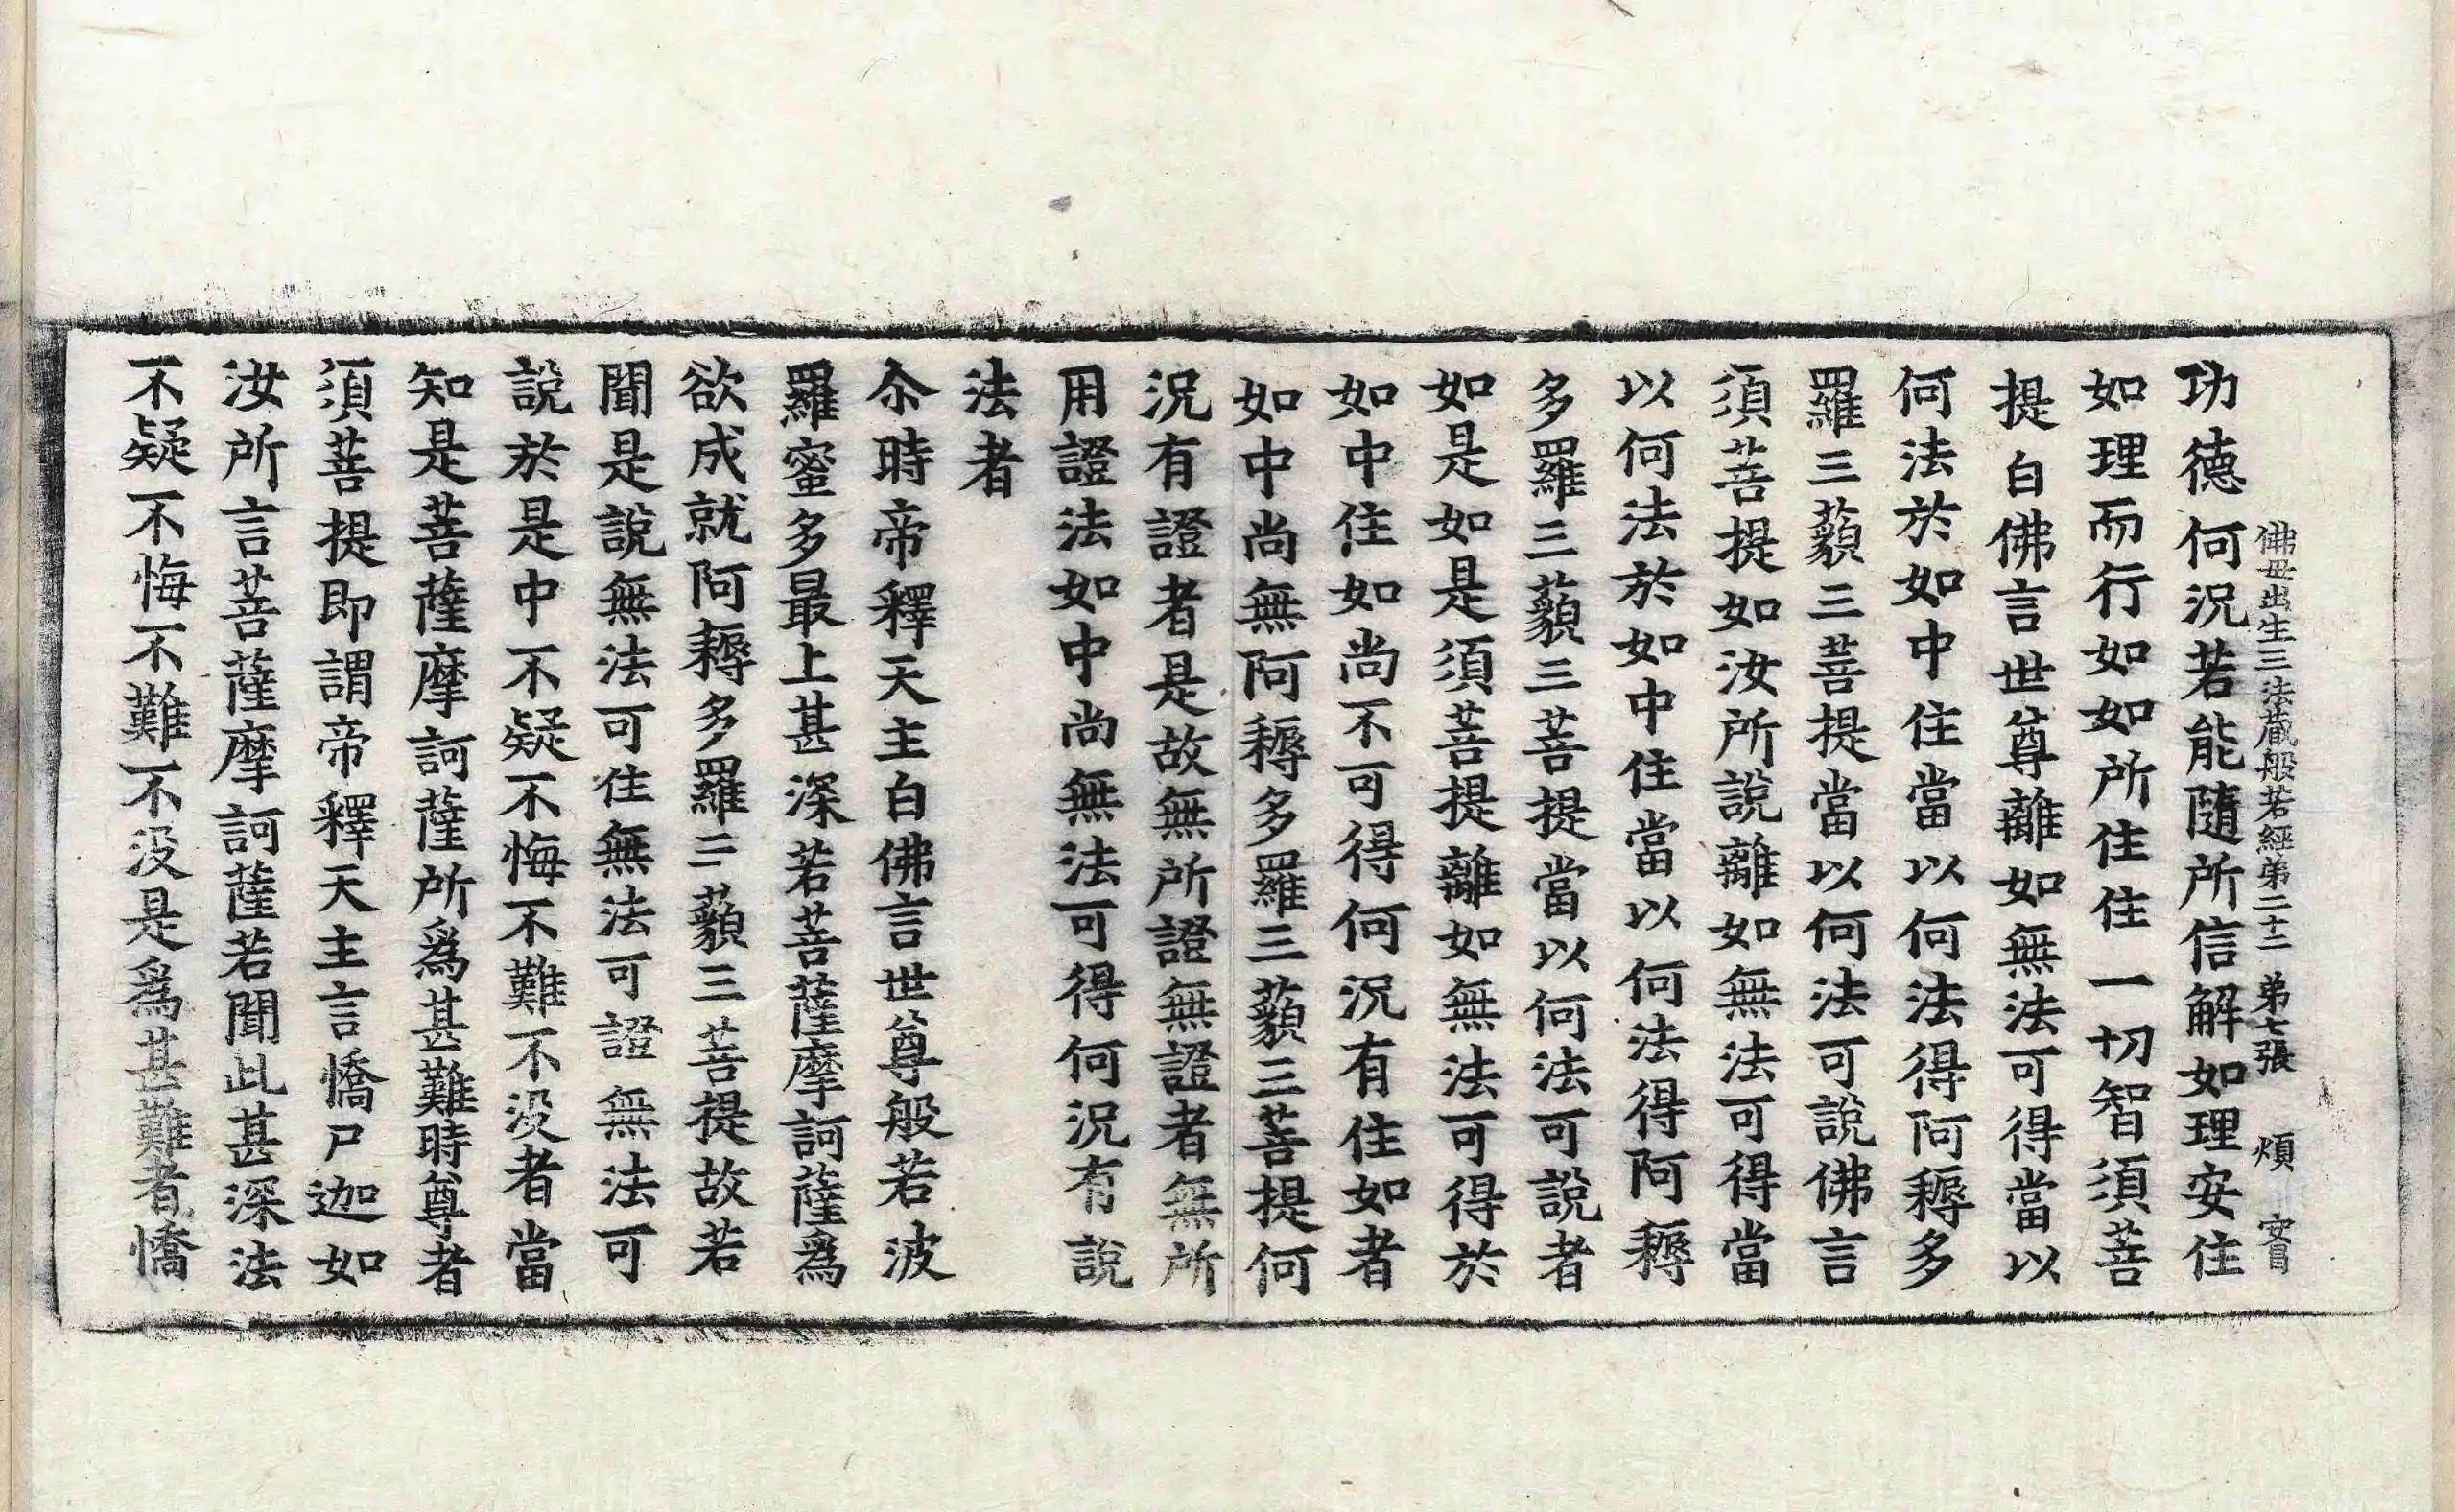 佛毋出生三法蔵般若經弟二十二 弟七張 煩 安眉
功德何況若能隨所信解如理安住
如理而行如如所住住一切智須菩
提白佛言世尊離如無法可得當以
何法於如中住當以何法得阿耨多
羅三藐三菩提當以何法可說佛言
須菩提如汝所說離如無法可得當
以何法於如中住當以何法得阿耨
多羅三藐三菩提當以何法可說者
如是如是須菩提離如無法可得於
如中住如尚不可得何況有住如者
如中尚無阿耨多羅三藐三菩提何
況有證者是故無所證無證者無所
用證法如中尚無法可得何況有說
法者
尒時帝釋天主白佛言世尊般若波
羅蜜多最上甚深若菩薩摩訶薩爲
欲成就阿耨多羅三藐三菩提故若
聞是說無法可住無法可證無法可
說於是中不疑不悔不難不没者當
知是菩薩摩訶薩所爲甚難時尊者
須菩提即謂帝釋天主言憍尸迦如
汝所言菩薩摩訶薩若聞此甚深法
不疑不悔不難不没是爲甚難者憍